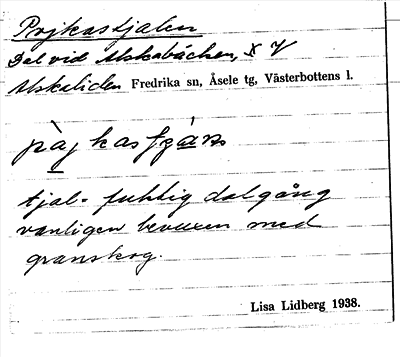 Pojkastjalen
Del vid Alskabäcken, X V
Alskaliden Fredrika sn, Åsele tg, Västerbottens l.
tjal = fuktig dalgång
vanligen bevuxen med
granskog.
Lisa Lidberg 1938.